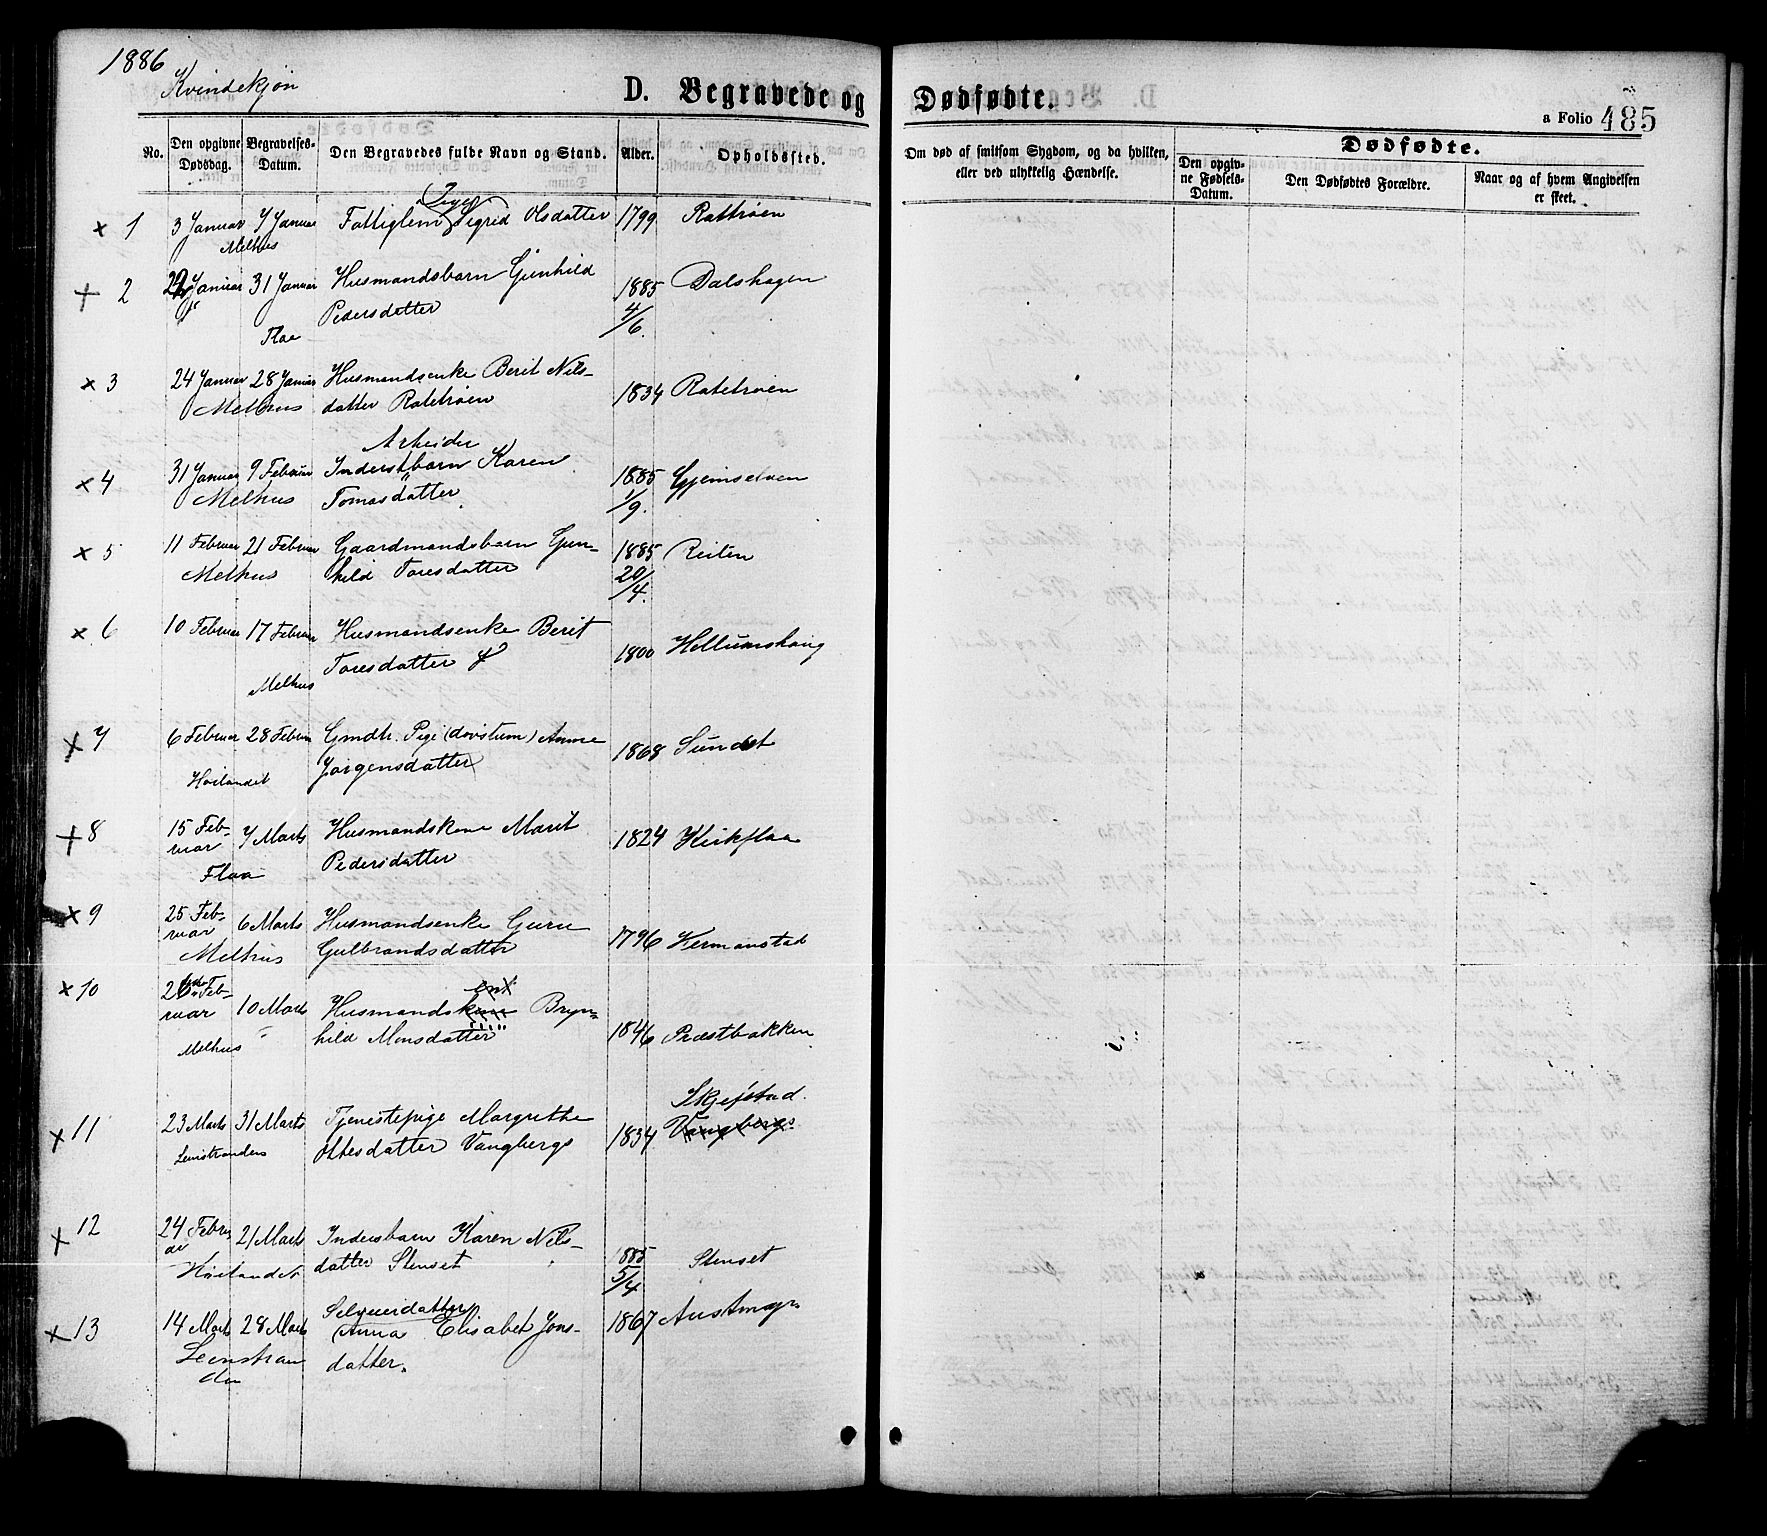 1886
Kvindekjøn
D. Begravede og Dødfødte.
a Folio 485
No.
Den opgivne Dødsdag.
Begravelses-Datum.
Den Begravedes fulde Navn og Stand.
Alder.
Opholdssted.
Om død af smitsom Sygdom, og da hvilken,
eller ved ulykkelig Hændelse.
Dødfødte.
Den opgiv-
ne Fødsels-
Datum.
Den Dødfødtes Forældre.
Naar og af hvem Angivelsen
er skeet.
Pige
x 1 3 Januar 7 Januar Fattiglem Sigrid Olsdatter 1799
Melhus
+ 2 Januar 31 Januar Husmandsbarn Gunhild 1885 Dalshagen
Pedersdatter 4/6.
Flaa
x 3 24 Januar 28 Januar Husmandsenke Berit Nils-
Melhus datter Ratetrøen 1834 Ratetrøen
Arbeider
x 4 31 Januar 9 Februar Inderstbarn Karen 1885
Melhus Tomasdatter 1/9.
x 5 11 Februar 21 Februar Gaardmandsbarn Gun- 1885 Reiten
Melhus hild Toresdatter 20/4.
x 6 10 Februar 17 Februar Husmandsenke Berit
Toresdatter 1800 Hellumshaug
Melhus
x 7 6 Februar 28 Februar Gmdtr. Pige (døvstum) Anne 1868 Sundet
Høilandet Jørgensdatter
+ 8 15 Feb- 7 Marts Husmandskone Marit 1824 Kirkflaa
ruar Pedersdatter
Flaa
x 9 25 Feb- 6 Marts Husmandsenke Guru
ruar Gulbrandsdatter 1796 Kermanstad
Melhus
x 10 Feb- 10 Marts Husmandskone Bryn-
ruar hild Monsdatter 1846 Præstbakken
Melhus
Skjefstad.
x 11 23 Marts 31 Marts Tjenestepige Margrethe Vangbergs
Leinstranden Ottesdatter Vangbergs 1834
x 12 24 Febru 21 Marts Inderstbarn Karen Nils-
ar datter Stenset 1885 Stenset
Høilandet 5/4
x 13 14 Marts 28 Marts Selveierdatter
Anna Elisabet Jons- 1867
Leinstran datter.
den